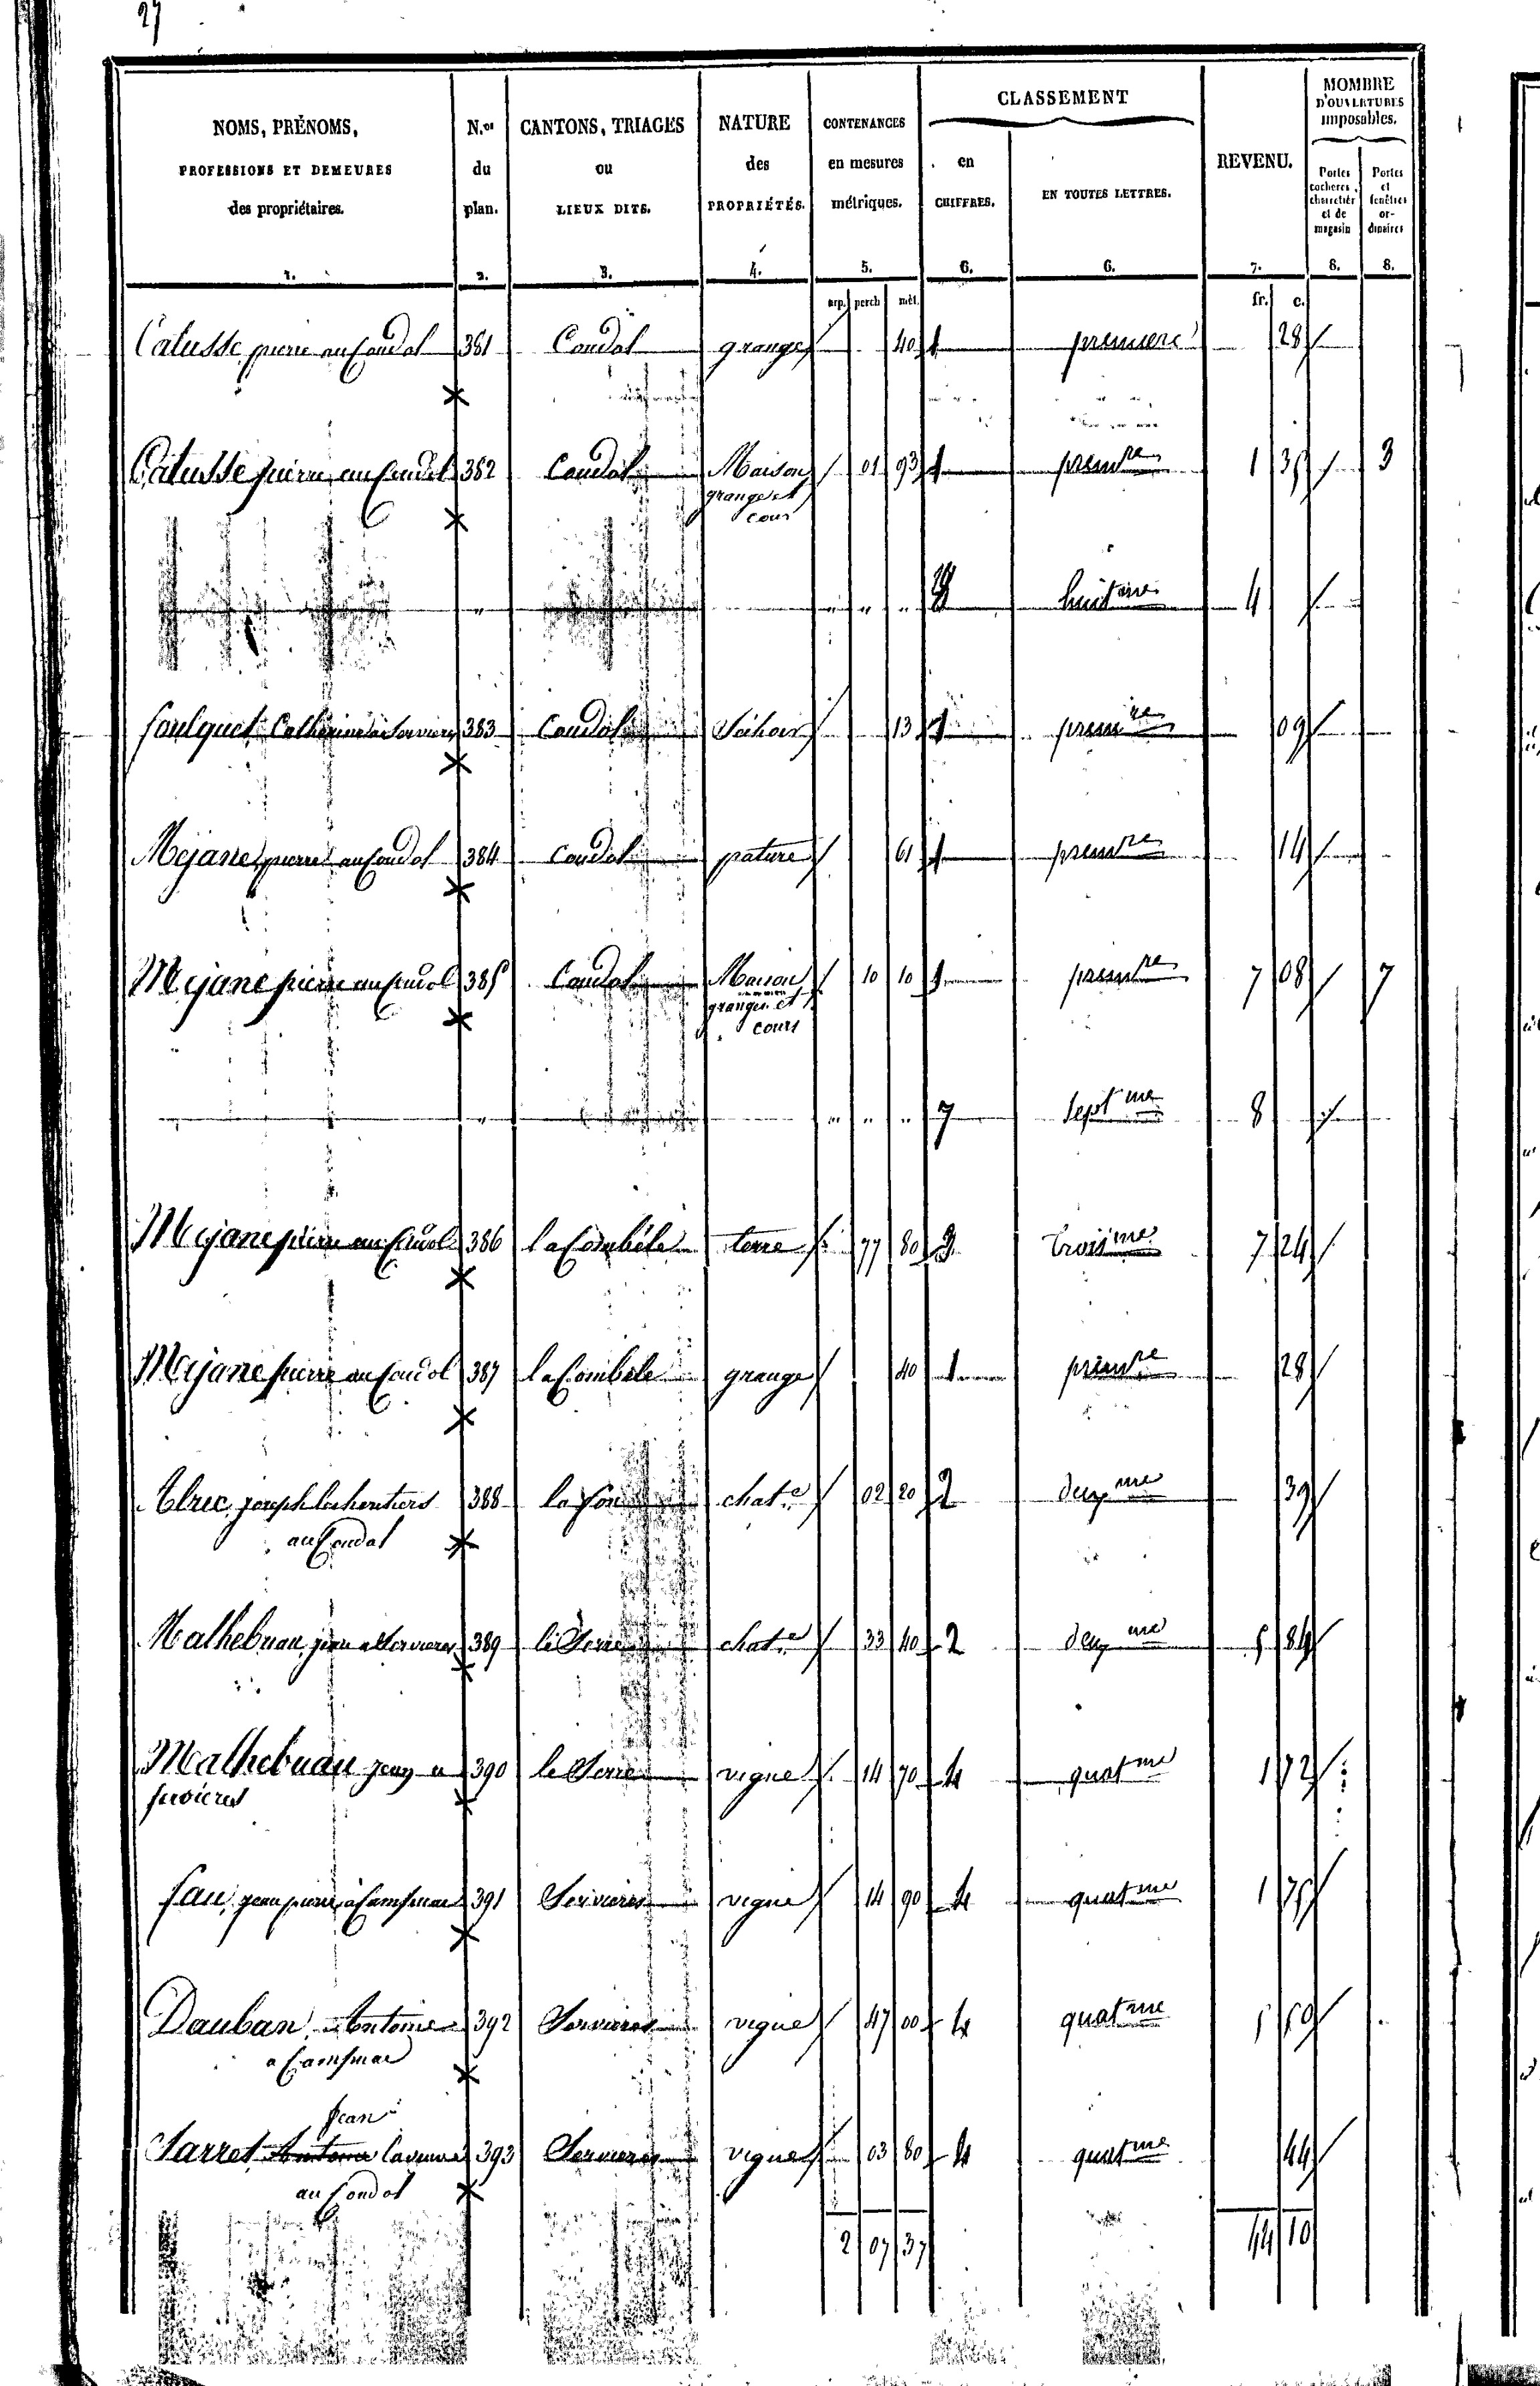 27
NOMS, PRÉNOMS, PROFESSIONS ET DEMEURES des propriétaires. 1.
N.os du plan. 2.
CANTONS, TRIAGES ou LIEUX DITS. 3.
NATURE des PROPRIÉTÉS. 4.
CONTENANCES en mesures métriques. 5.
CLASSEMENT
en CHIFFRES. 6.
EN TOUTES LETTRES. 6.
REVENU. 7.
NOMBRE D'OUVERTURES imposables.
Portes cocheres, charretier et de magasin 8.
Portes et fenêtres ordinaires 8.
arp. perch mèt. fr. c.
Catusse pierre au Condol 381 Condol grange 40 1 premiere 28
Catusse pierre au Condol 382 Condol Maison 01 93 1 premre 1 35 3
grange et
cour
" " " " 8 huitme 4
foulquet Catherine a Servieres 383 Condol Séchoir 13 1 premre 09
Mejane pierre au Condol 384 Condol pature 61 1 premre 14
Mejane pierre au Condol 385 Condol Maison 10 10 1 premre 7 08 7
granges et
cours
" " " " 7 septme 8
Mejane pierre au Condol 386 la Combéle terre 77 80 3 troisme 7 24
Mejane pierre au Condol 387 la Combéle grange 40 1 premre 28
Alric joseph les heritiers 388 la chate 02 20 2 deuxme 39
au Condol
Mathebuau jean a Servieres 389 le Serre chate 33 40 2 deuxme 5 84
Mathebuau jean a 390 le Serre vigne 14 70 4 quatme 1 72
servieres
fau, jean pierre a Camsmae 391 Servieres vigne 14 90 4 quatme 1 75
Dauban, Antoine 392 Servieres vigne 47 00 4 quatme 5 50
a Camsmae
Jean
Sarret Antoine 393 Servieres vigne 03 80 4 quatme 44
au Condol
2 07 37 44 10